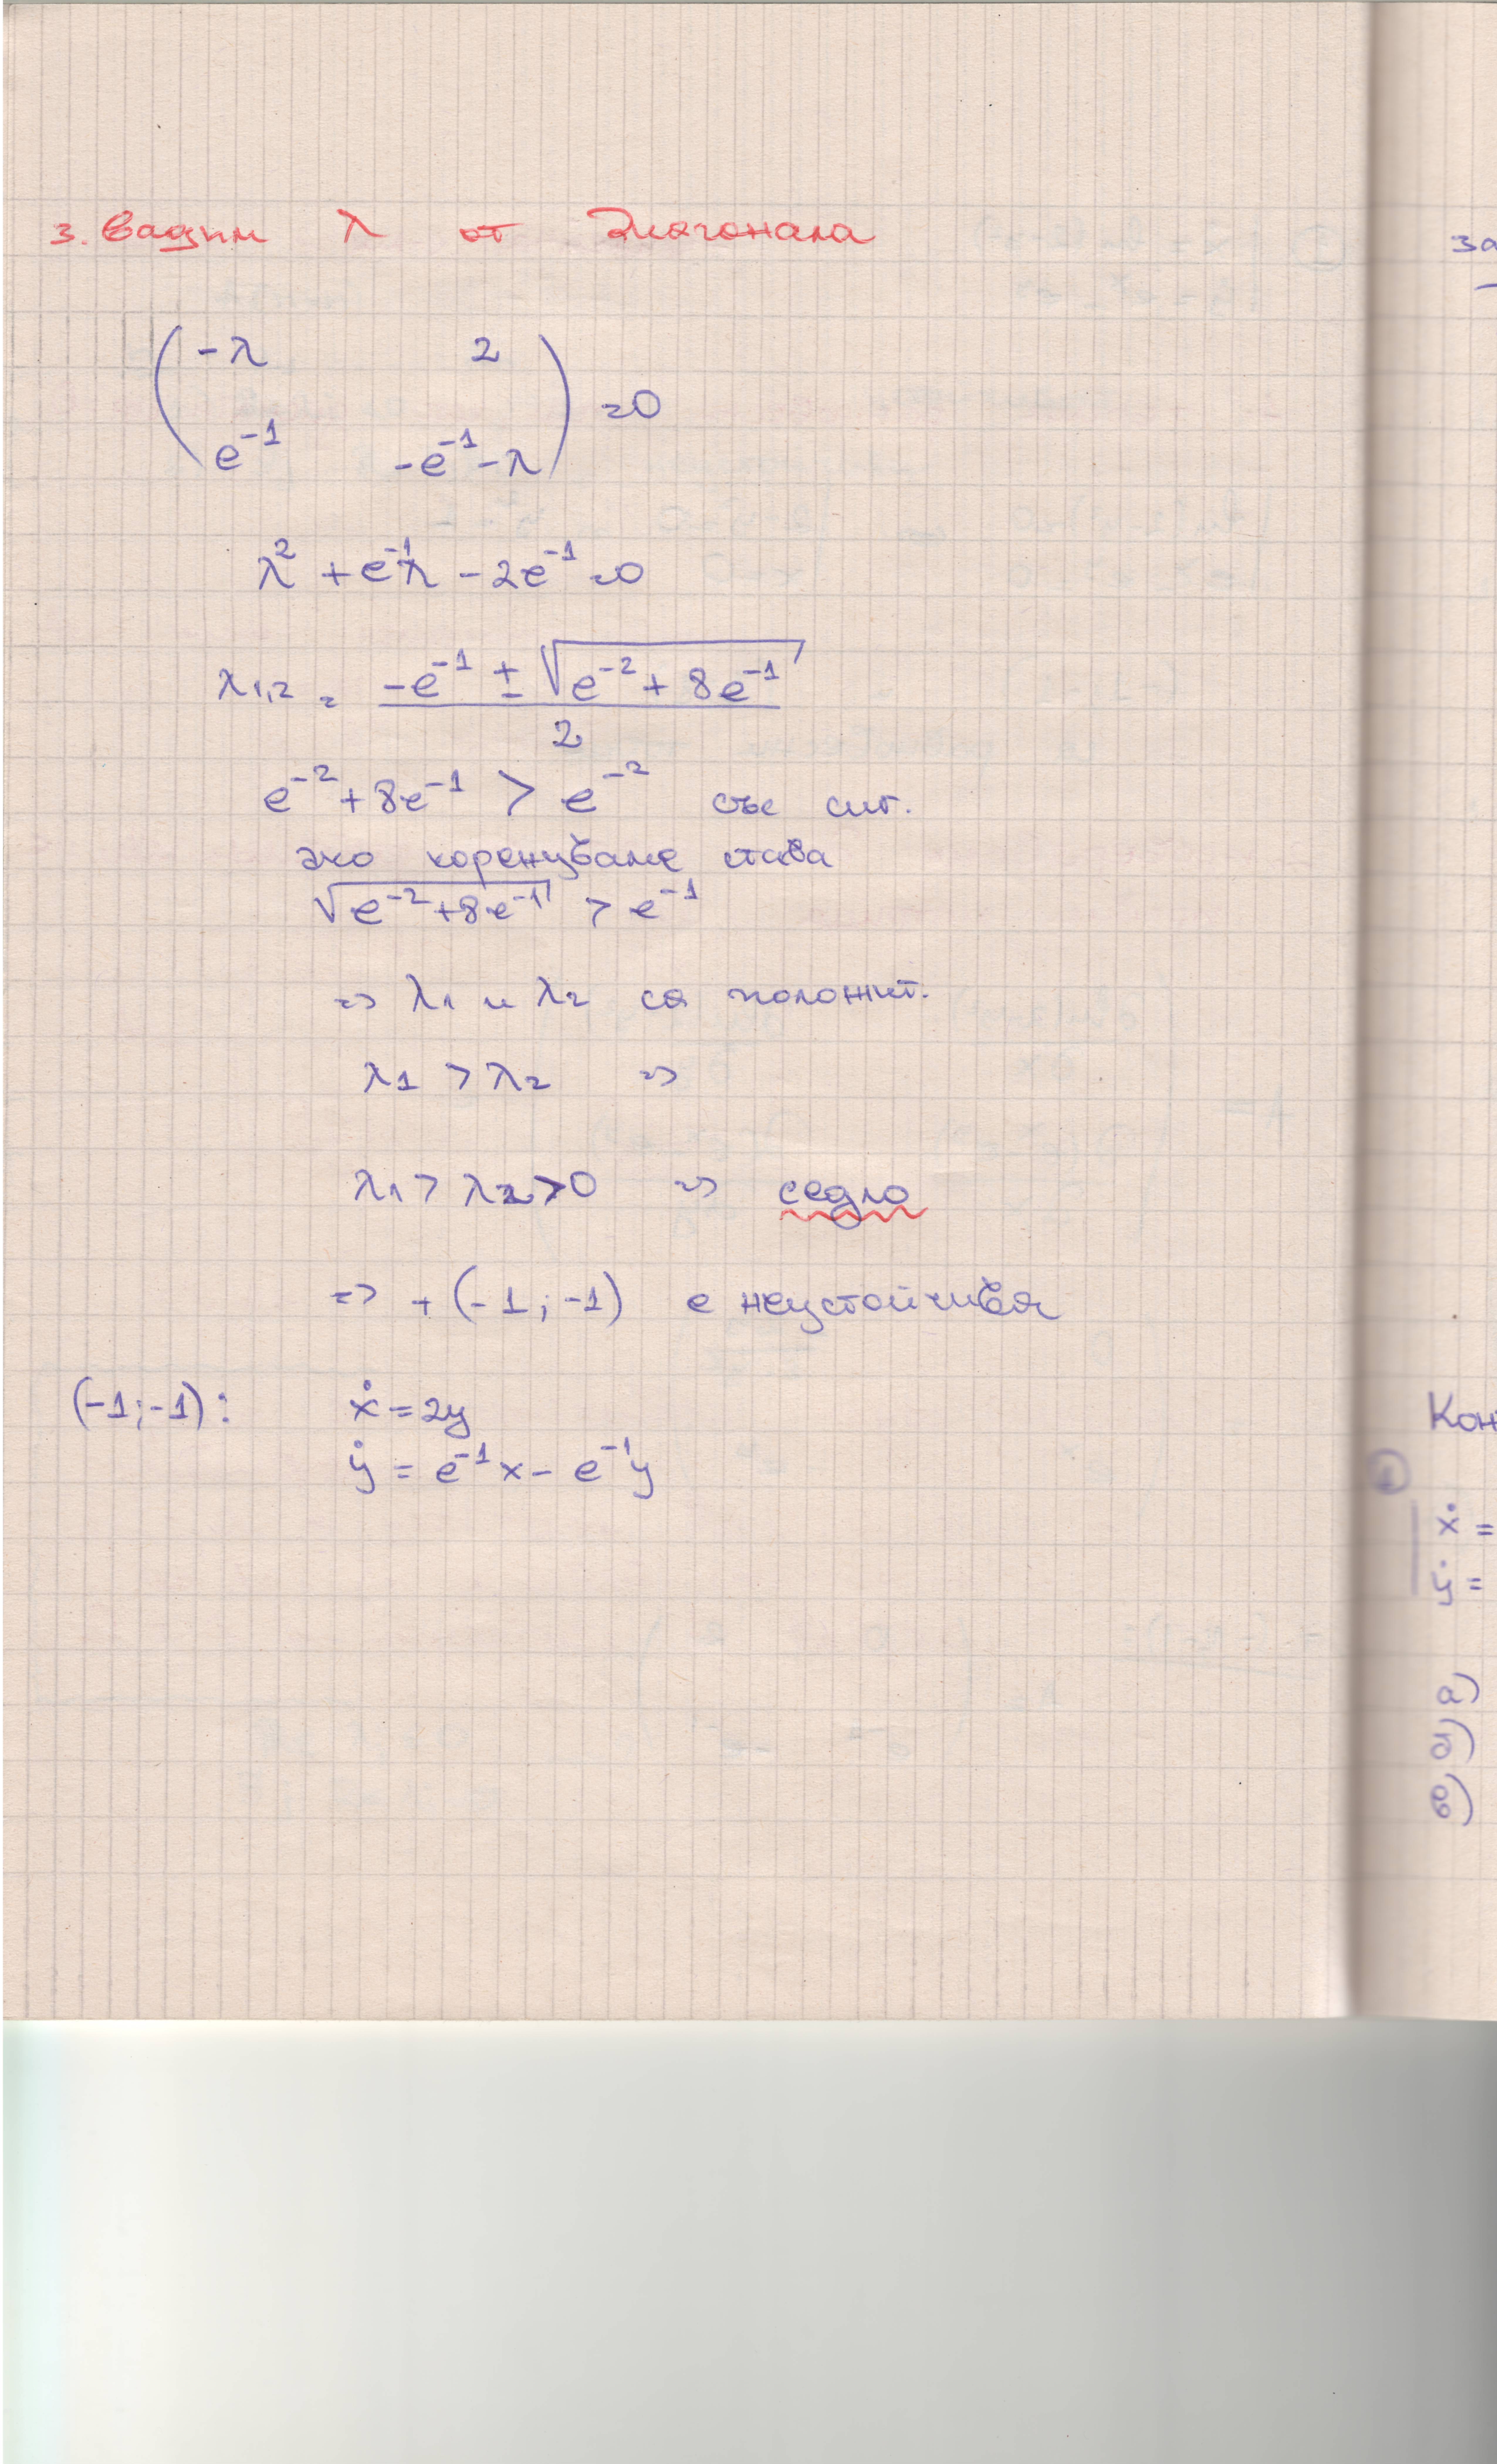 3. Вадим λ от диагонала
( -λ 2
e⁻¹ -e⁻¹-λ ) =0
λ² + e⁻¹λ - 2e⁻¹ =0
λ1,2 = (-e⁻¹ ± √(e⁻² + 8e⁻¹)) / 2
e⁻² + 8e⁻¹ > e⁻² със сиг.
ако коренуваме става
√(e⁻²+8e⁻¹) > e⁻¹
=> λ1 и λ2 са положит.
λ1 > λ2 =>
λ1 > λ2 > 0 => седло
=> т (-1; -1) е неустойчива
(-1; -1): ẋ = 2y
ẏ = e⁻¹x - e⁻¹y
за
Кон
ẋ =
ẏ =
а)
б)
в)